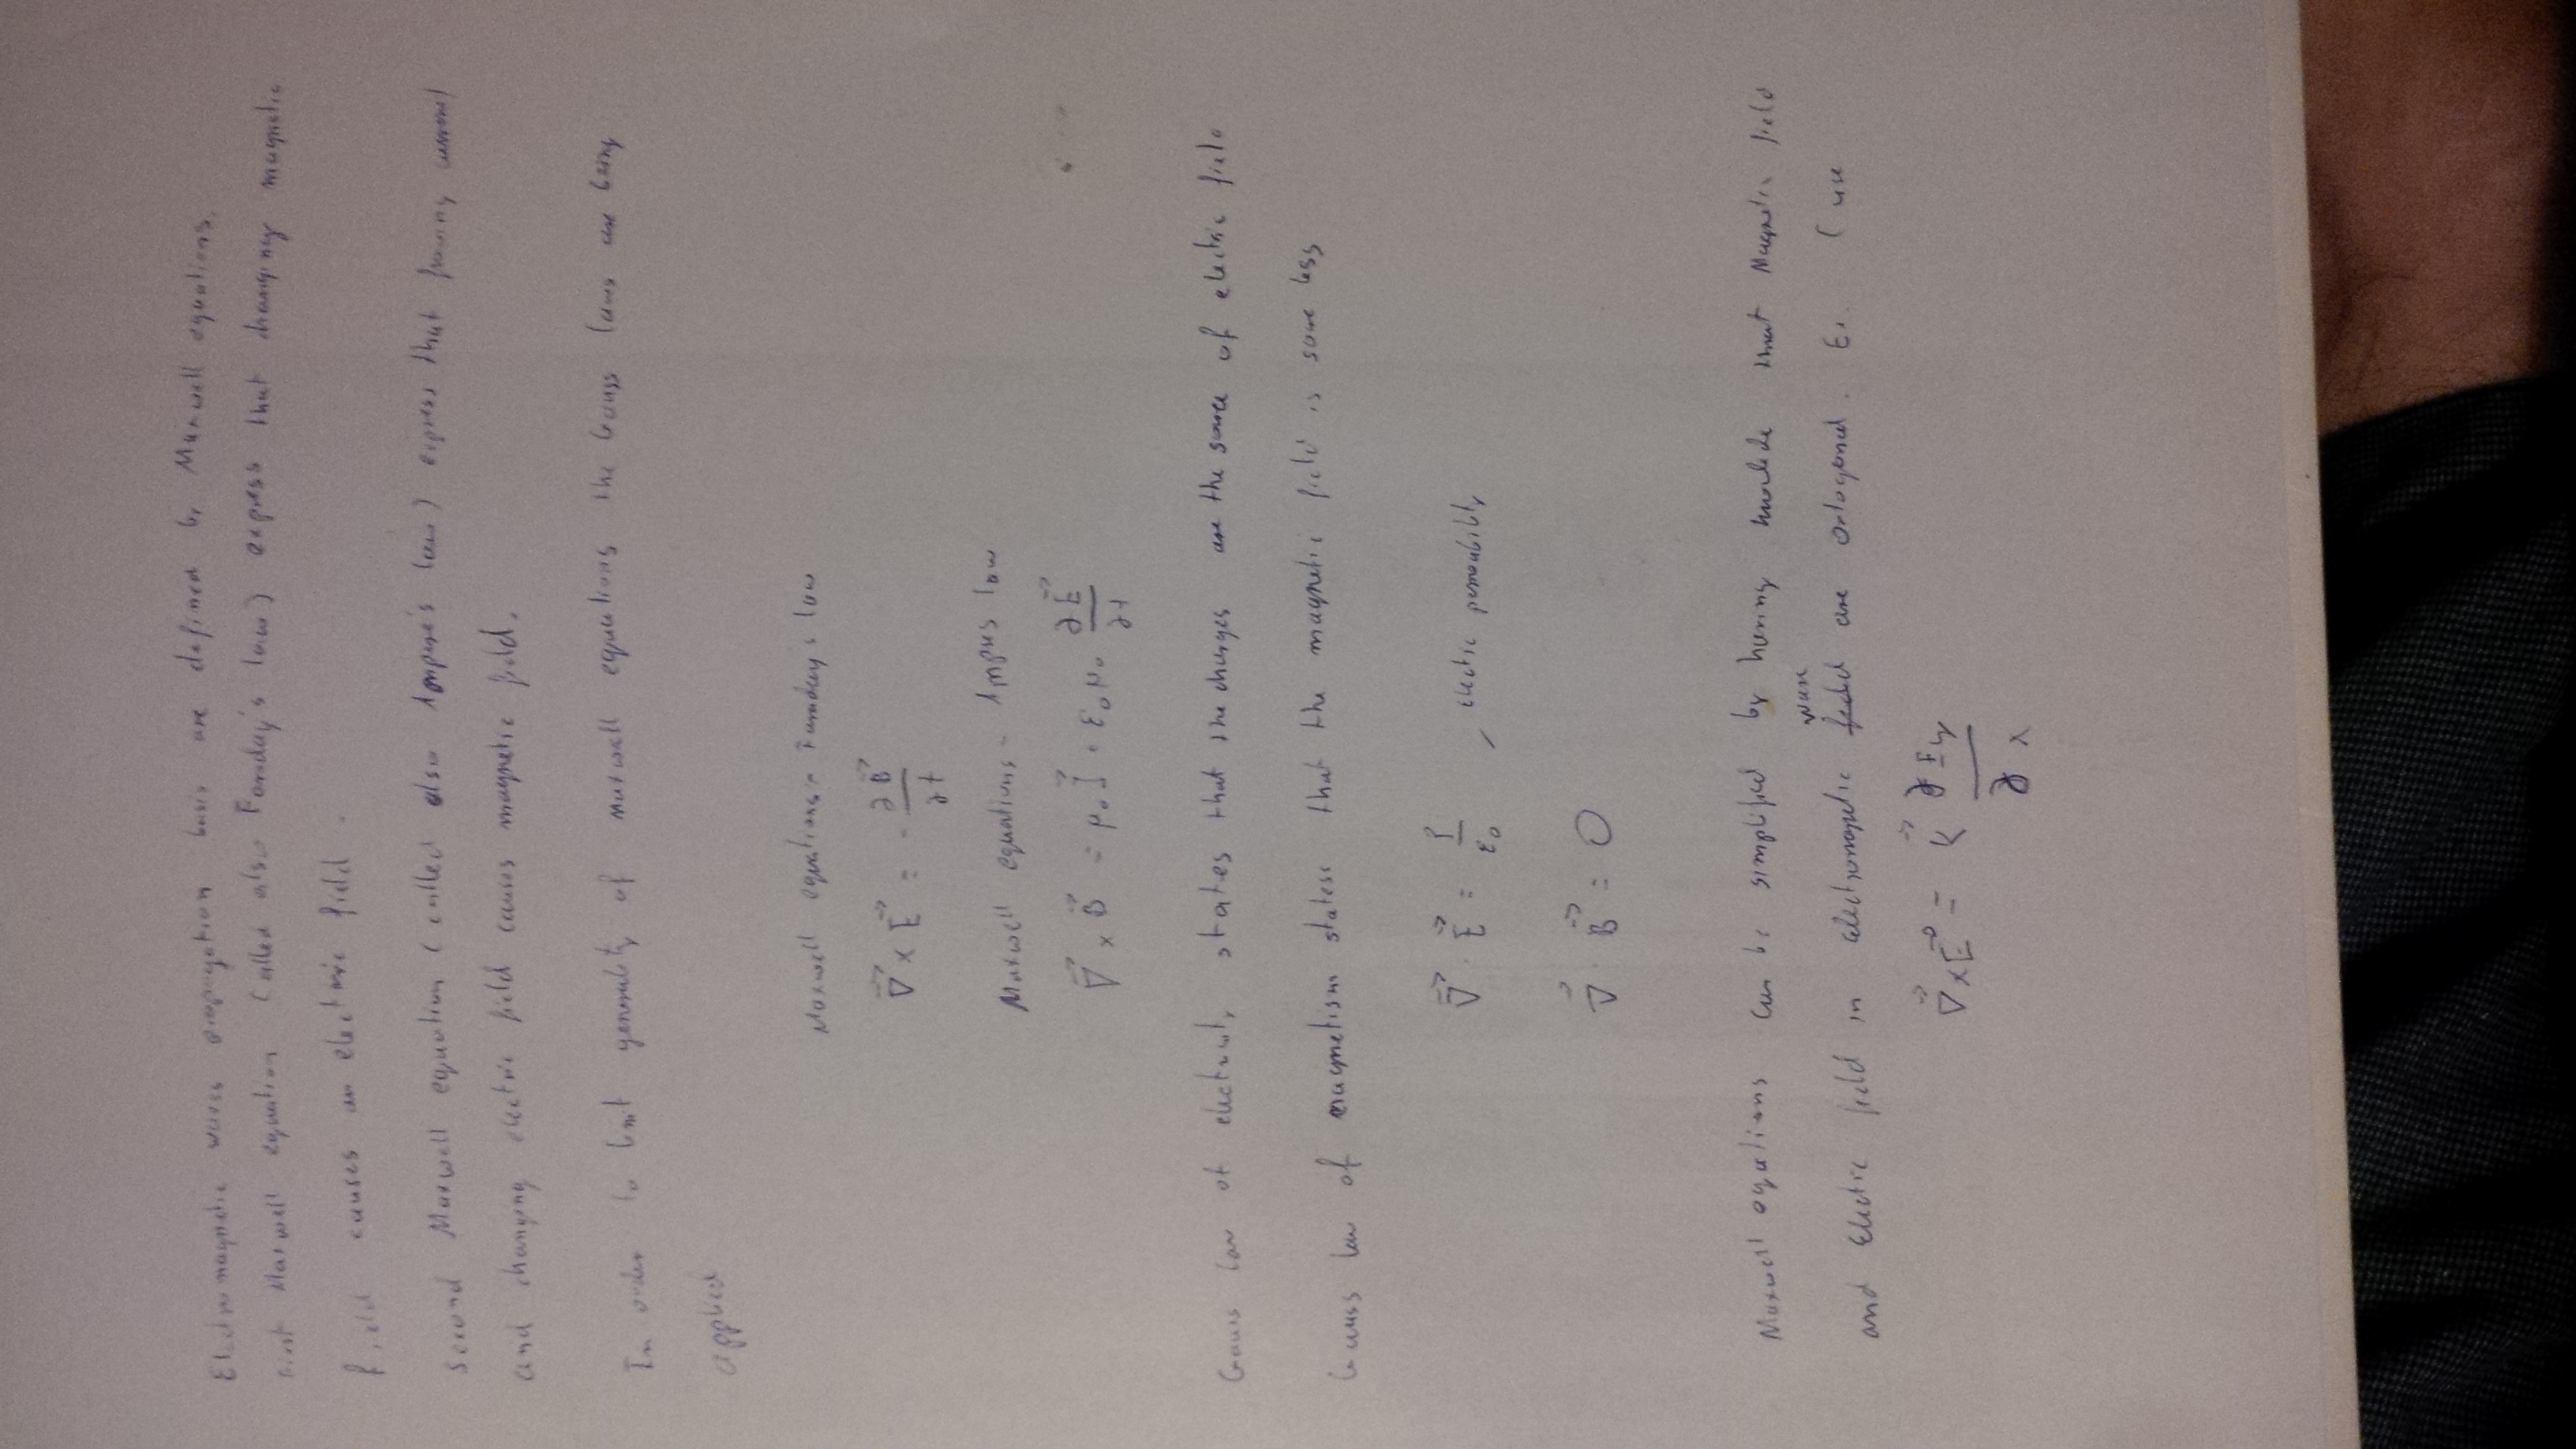 Electromagnetic waves propagation basis are defined by Maxwell equations.
First Maxwell equation (called also Faraday's law) express that changing magnetic
field causes an electric field.
Second Maxwell equation (called also Ampere's law) express that flowing current
and changing electric field causes magnetic field.
In order to limit generality of Maxwell equations the Gauss laws are being
applied
Maxwell equations - Faraday's law
∇⃗ × E⃗ = - ∂B⃗ / ∂t
Maxwell equations - law
∇⃗ × B⃗ = μ₀ J⃗ + ε₀ μ₀ ∂E⃗ / ∂t
Gauss law of electricity states that the charges are the source of electric field
Gauss law of magnetism statess that the magnetic field is source less
∇⃗ · E⃗ = ρ / ε₀ , electric
∇⃗ · B⃗ = 0
Maxwell equations can be simplified by having that Magnetic field
and Electric field in electromagnetic wave are ortogonal. (use
∇⃗ × E⃗ = k⃗ ∂Ey / ∂x